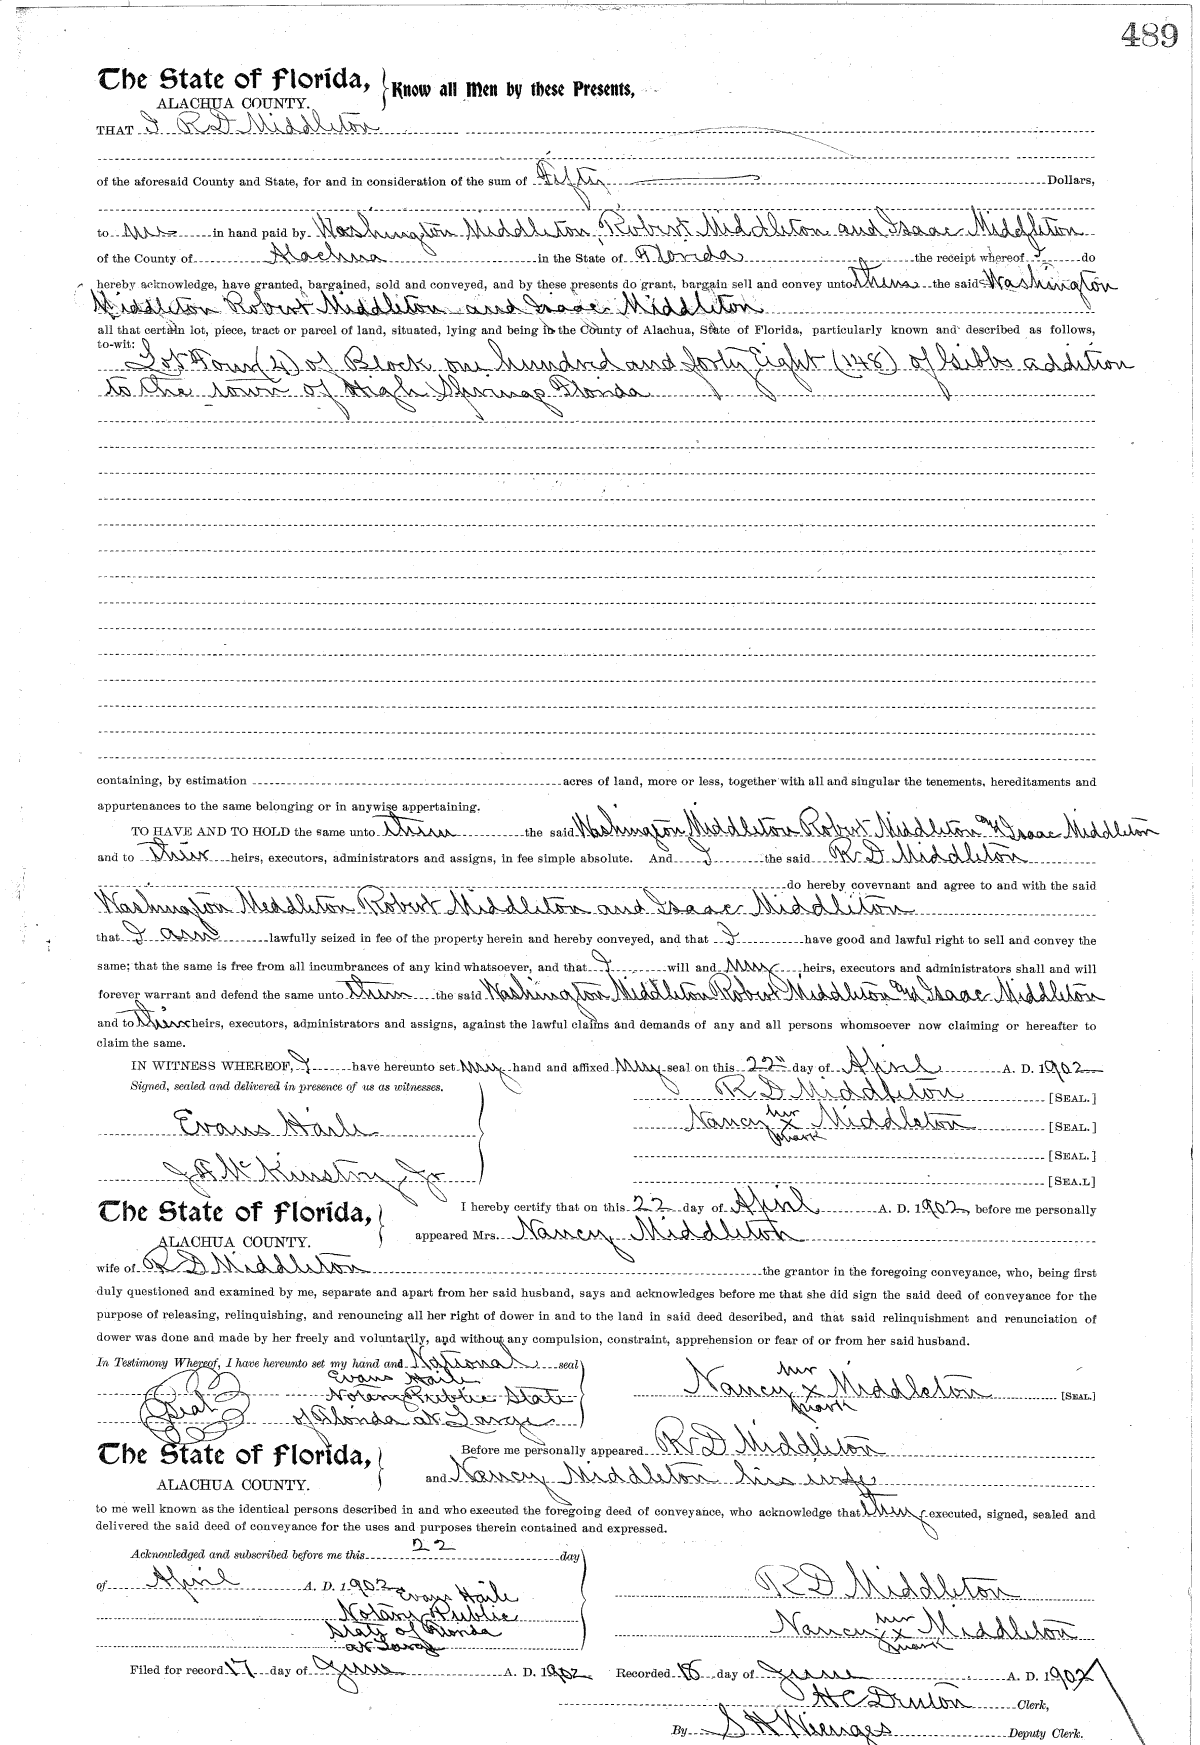 489
The State of Florida, Know all Men by these Presents,
ALACHUA COUNTY.
THAT I R D Middleton
of the aforesaid County and State, for and in consideration of the sum of Fifty Dollars,
to me in hand paid by Washington Middleton, Robert Middleton and Isaac Middleton
of the County of Alachua in the State of Florida the receipt whereof I do
hereby acknowledge, have granted, bargained, sold and conveyed, and by these presents do grant, bargain sell and convey unto them the said Washington
Middleton Robert Middleton and Isaac Middleton
all that certain lot, piece, tract or parcel of land, situated, lying and being in the County of Alachua, State of Florida, particularly known and described as follows,
to-wit:
Lot Four (4) of Block one hundred and forty Eight (148) of Gibbs addition
to the town of High Springs Florida
containing, by estimation acres of land, more or less, together with all and singular the tenements, hereditaments and
appurtenances to the same belonging or in anywise appertaining.
TO HAVE AND TO HOLD the same unto them the said Washington Middleton Robert Middleton & Isaac Middleton
and to their heirs, executors, administrators and assigns, in fee simple absolute. And I the said R D Middleton
do hereby covevnant and agree to and with the said
Washington Meddleton Robert Middleton and Isaac Middleton
that I am lawfully seized in fee of the property herein and hereby conveyed, and that I have good and lawful right to sell and convey the
same; that the same is free from all incumbrances of any kind whatsoever, and that I will and my heirs, executors and administrators shall and will
forever warrant and defend the same unto them the said Washington Middleton Robert Middleton & Isaac Middleton
and to their heirs, executors, administrators and assigns, against the lawful claims and demands of any and all persons whomsoever now claiming or hereafter to
claim the same.
IN WITNESS WHEREOF, I have hereunto set my hand and affixed my seal on this 22" day of April A. D. 1902
Signed, sealed and delivered in presence of us as witnesses.
R D Middleton [SEAL.]
Evans Haile
Nancy her x mark Middleton [SEAL.]
[SEAL.]
J A McKinstry Jr
[SEA.L]
The State of Florida,
ALACHUA COUNTY.
I hereby certify that on this 22 day of April A. D. 1902, before me personally
appeared Mrs. Nancy Middleton
wife of R D Middleton the grantor in the foregoing conveyance, who, being first
duly questioned and examined by me, separate and apart from her said husband, says and acknowledges before me that she did sign the said deed of conveyance for the
purpose of releasing, relinquishing, and renouncing all her right of dower in and to the land in said deed described, and that said relinquishment and renunciation of
dower was done and made by her freely and voluntarily, and without any compulsion, constraint, apprehension or fear of or from her said husband.
In Testimony Whereof, I have hereunto set my hand and National seal
Evans Haile
Seal
Notary Public State
of Florida at Large
Nancy her x mark Middleton [SEAL.]
The State of Florida,
ALACHUA COUNTY.
Before me personally appeared R D Middleton
and Nancy Middleton his wife
to me well known as the identical persons described in and who executed the foregoing deed of conveyance, who acknowledge that they executed, signed, sealed and
delivered the said deed of conveyance for the uses and purposes therein contained and expressed.
Acknowledged and subscribed before me this 22 day
of April A. D. 1902
Evans Haile
Notary Public
State of Florida
at Large
R D Middleton
Nancy her x mark Middleton
Filed for record 17 day of June A. D. 1902 Recorded 18 day of June A. D. 1902
H C Denton Clerk,
By S H Wienges Deputy Clerk.